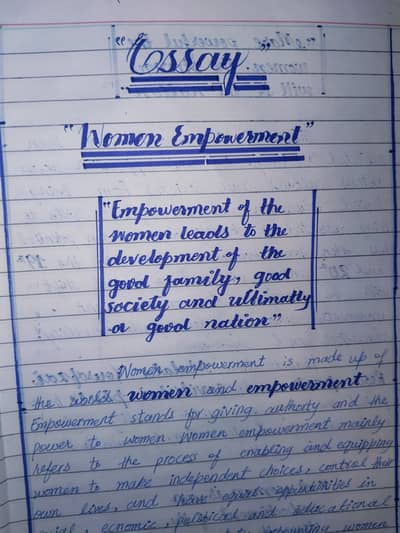 "Essay"
"Women Empowerment"
"Empowerment of the
women leads to the
development of the
good family, good
society and ultimatly
a good nation"
Women empowerment is made up of
the women and empowerment
Empowerment stands for giving authority and the
power to women women empowerment mainly
refers to the process of enabling and equipping
women to make independent choices, control their
own lives, and in
ecnomic, political and educational
women